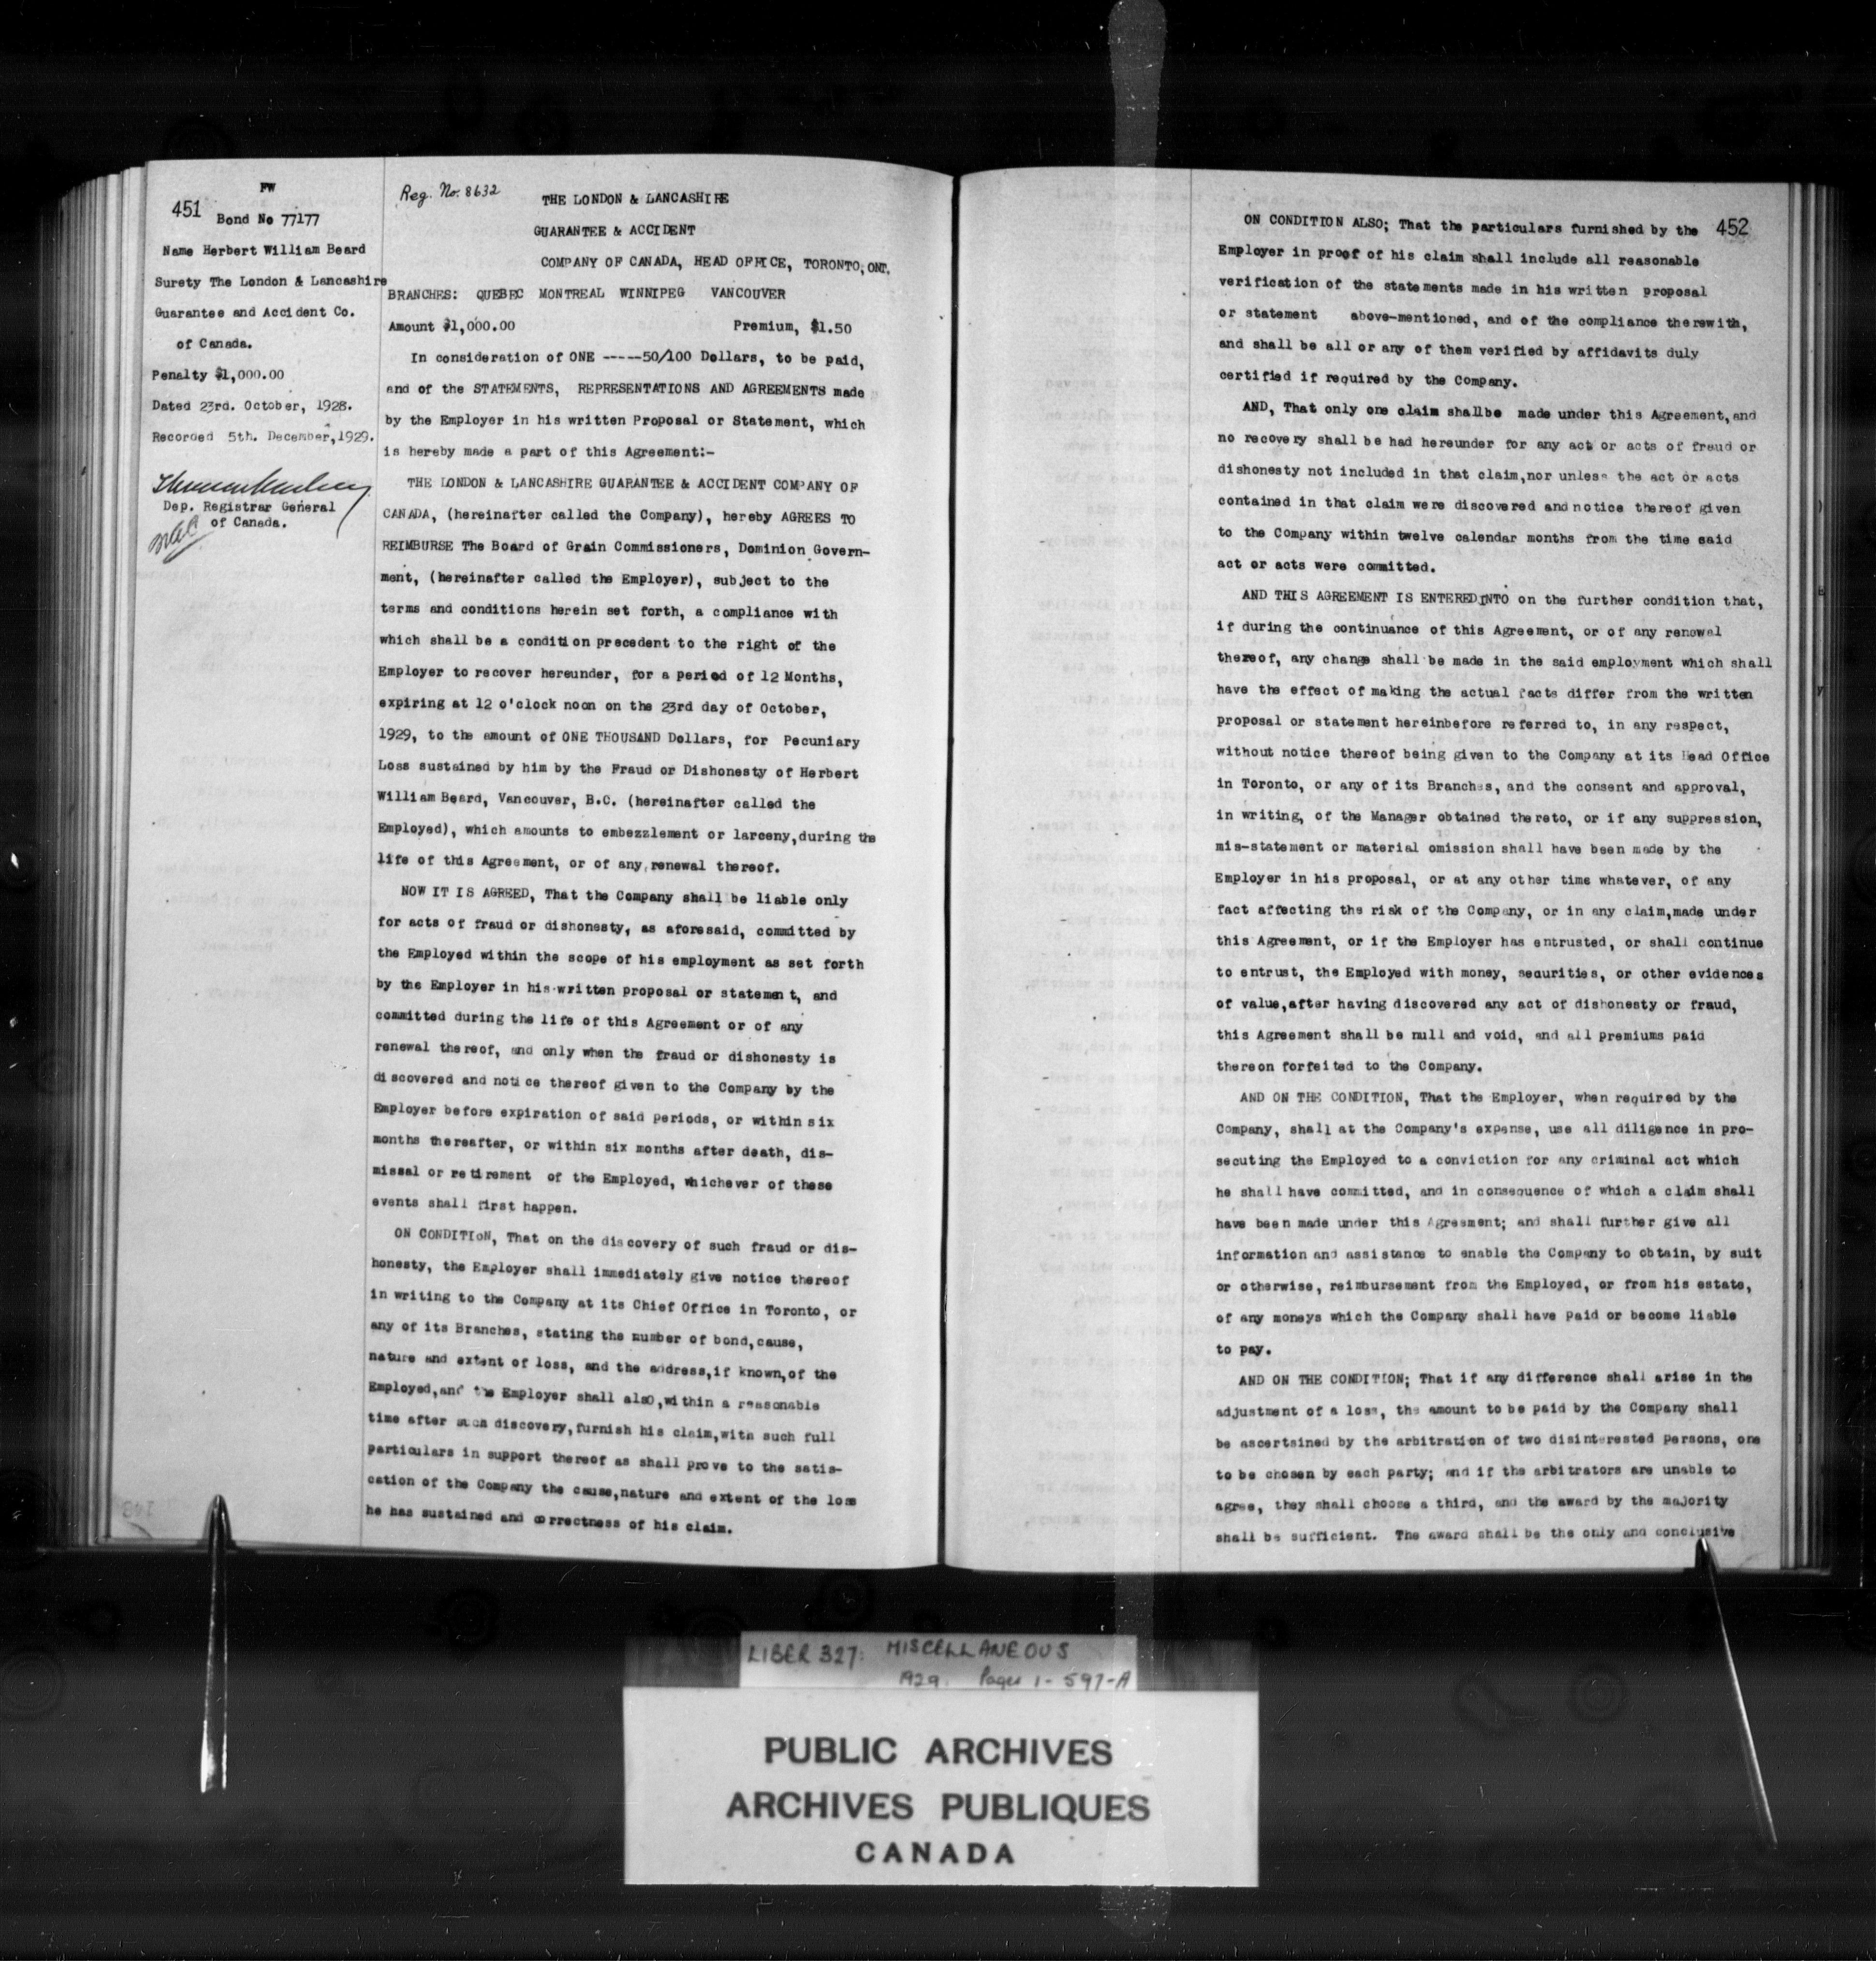 FW
451
Bond No 77177
Name Herbert William Beard
Surety The London & Lancashire
Guarantee and Accident Co.
of Canada.
Penalty $1,000.00
Dated 23rd. October, 1928.
Recorded 5th. December,1929.
Dep. Registrar General
of Canada.
Reg. No. 8632
THE LONDON & LANCASHIRE
GUARANTEE & ACCIDENT
COMPANY OF CANADA, HEAD OFFICE, TORONTO, ONT.
BRANCHES: QUEBEC MONTREAL WINNIPEG VANCOUVER
Amount $1,000.00 Premium, $1.50
In consideration of ONE -----50/100 Dollars, to be paid,
and of the STATEMENTS, REPRESENTATIONS AND AGREEMENTS made
by the Employer in his written Proposal or Statement, which
is hereby made a part of this Agreement:-
THE LONDON & LANCASHIRE GUARANTEE & ACCIDENT COMPANY OF
CANADA, (hereinafter called the Company), hereby AGREES TO
REIMBURSE The Board of Grain Commissioners, Dominion Govern-
ment, (hereinafter called the Employer), subject to the
terms and conditions herein set forth, a compliance with
which shall be a condition precedent to the right of the
Employer to recover hereunder, for a period of 12 Months,
expiring at 12 o'clock noon on the 23rd day of October,
1929, to the amount of ONE THOUSAND Dollars, for Pecuniary
Loss sustained by him by the Fraud or Dishonesty of Herbert
William Beard, Vancouver, B.C. (hereinafter called the
Employed), which amounts to embezzlement or larceny,during the
life of this Agreement, or of any renewal thereof.
NOW IT IS AGREED, That the Company shall be liable only
for acts of fraud or dishonesty, as aforesaid, committed by
the Employed within the scope of his employment as set forth
by the Employer in his written proposal or statement, and
committed during the life of this Agreement or of any
renewal thereof, and only when the fraud or dishonesty is
discovered and notice thereof given to the Company by the
Employer before expiration of said periods, or within six
months thereafter, or within six months after death, dis-
missal or retirement of the Employed, whichever of these
events shall first happen.
ON CONDITION, That on the discovery of such fraud or dis-
honesty, the Employer shall immediately give notice thereof
in writing to the Company at its Chief Office in Toronto, or
any of its Branches, stating the number of bond,cause,
nature and extent of loss, and the address,if known,of the
Employed,and the Employer shall also,within a reasonable
time after such discovery,furnish his claim,with such full
particulars in support thereof as shall prove to the satis-
cation of the Company the cause,nature and extent of the loss
he has sustained and correctness of his claim.
452
ON CONDITION ALSO; That the particulars furnished by the
Employer in proof of his claim shall include all reasonable
verification of the statements made in his written proposal
or statement above-mentioned, and of the compliance therewith,
and shall be all or any of them verified by affidavits duly
certified if required by the Company.
AND, That only one claim shallbe made under this Agreement,and
no recovery shall be had hereunder for any act or acts of fraud or
dishonesty not included in that claim,nor unless the act or acts
contained in that claim were discovered and notice thereof given
to the Company within twelve calendar months from the time said
act or acts were committed.
AND THIS AGREEMENT IS ENTERED INTO on the further condition that,
if during the continuance of this Agreement, or of any renewal
thereof, any change shall be made in the said employment which shall
have the effect of making the actual facts differ from the written
proposal or statement hereinbefore referred to, in any respect,
without notice thereof being given to the Company at its Head Office
in Toronto, or any of its Branches, and the consent and approval,
in writing, of the Manager obtained thereto, or if any suppression,
mis-statement or material omission shall have been made by the
Employer in his proposal, or at any other time whatever, of any
fact affecting the risk of the Company, or in any claim,made under
this Agreement, or if the Employer has entrusted, or shall continue
to entrust, the Employed with money, securities, or other evidences
of value,after having discovered any act of dishonesty or fraud,
this Agreement shall be null and void, and all premiums paid
thereon forfeited to the Company.
AND ON THE CONDITION, That the Employer, when required by the
Company, shall at the Company's expense, use all diligence in pro-
secuting the Employed to a conviction for any criminal act which
he shall have committed, and in consequence of which a claim shall
have been made under this Agreement; and shall further give all
information and assistance to enable the Company to obtain, by suit
or otherwise, reimbursement from the Employed, or from his estate,
of any moneys which the Company shall have paid or become liable
to pay.
AND ON THE CONDITION; That if any difference shall arise in the
adjustment of a loss, the amount to be paid by the Company shall
be ascertained by the arbitration of two disinterested persons, one
to be chosen by each party; and if the arbitrators are unable to
agree, they shall choose a third, and the award by the majority
shall be sufficient. The award shall be the only and conclusive
LIBER 327: MISCELLANEOUS
1929. Pages 1-597-A
PUBLIC ARCHIVES
ARCHIVES PUBLIQUES
CANADA